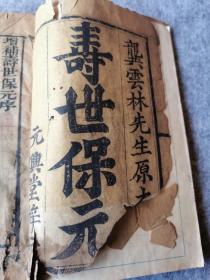 龔雲林先生原
壽世保元
元興堂
增補壽世保元序